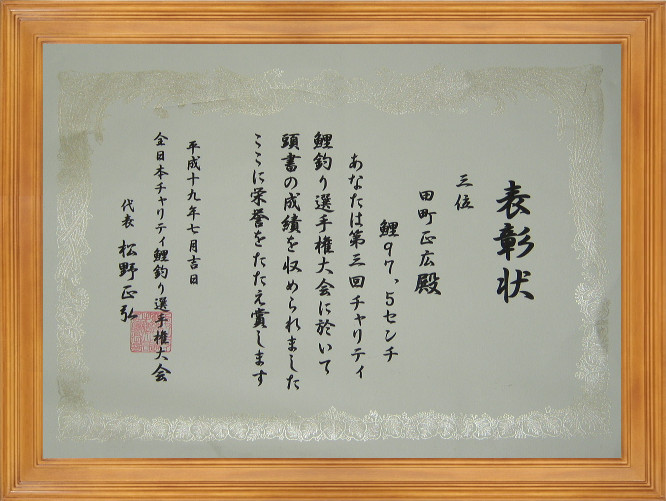 表彰状
三位
田町正広殿
鯉97,5センチ
あなたは第三回チャリティ
鯉釣り選手権大会に於いて
頭書の成績を収められました
ここに栄誉をたたえ賞します
平成十九年七月吉日
全日本チャリティ鯉釣り選手権大会
代表 松野正弘